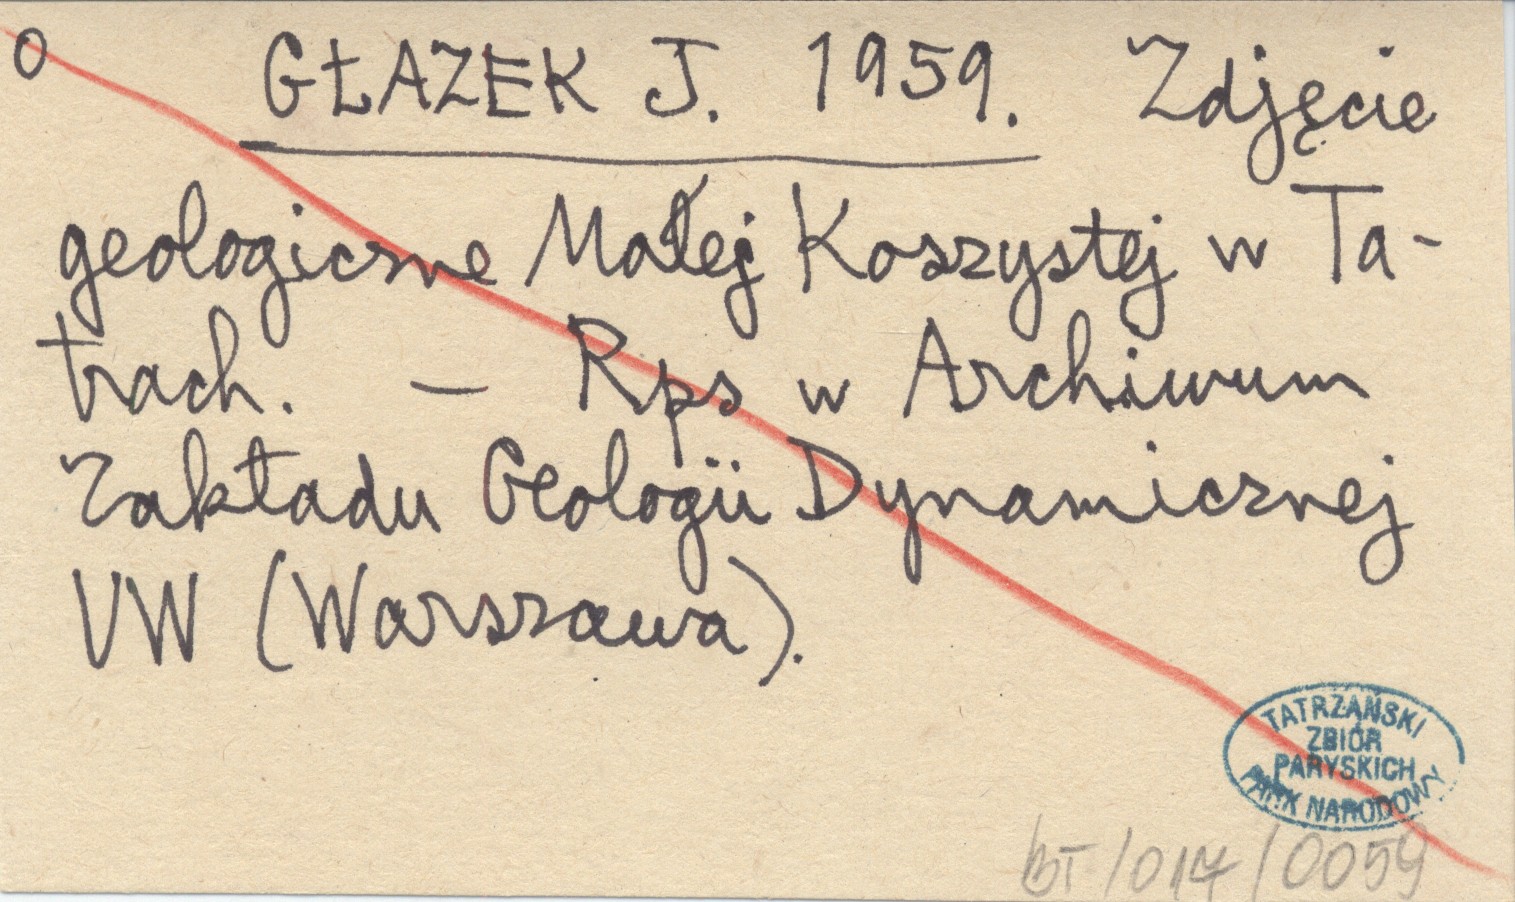 O GŁAZEK J. 1959. Zdjęcie
geologiczne Małej Koszystej w Ta-
trach. — Rps w Archiwum
Zakładu Geologii Dynamicznej
UW (Warszawa).
TATRZAŃSKI
ZBIÓR
PARYSKICH
PARK NARODOWY
BT/017/0059